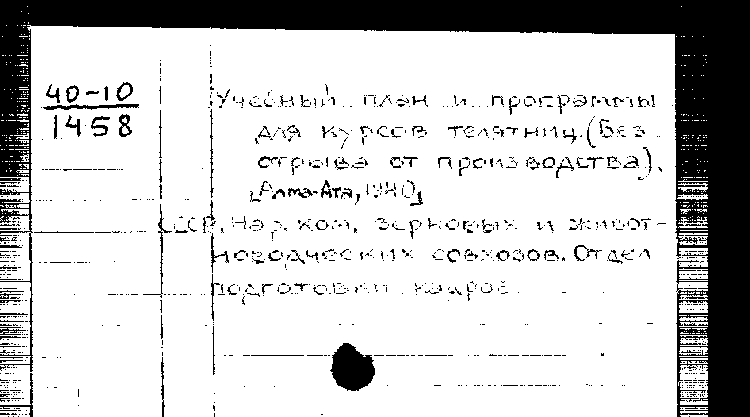 40-10
1458
Учебный план и программы
для курсов телятниц. (Без
отрыва от производства).
[Алма-Ата, 1940]
СССР. Нар. ком. зерновых и живот-
новодческих совхозов. Отдел
подготовки кадров.